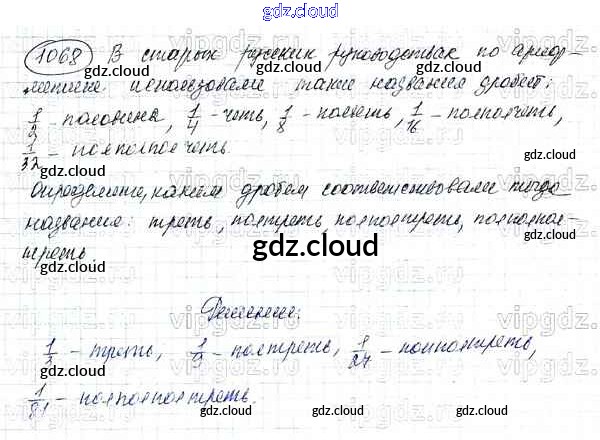 gdz.cloud
1068 В старых русских руководствах по ариф-
метике использовали такие названия дробей:
1/2 - половина, 1/4 - четь, 1/8 - полчеть, 1/16 - полполчеть,
1/32 - полполполчеть.
gdz.cloud gdz.cloud gdz.cloud
Определите, каким дробям соответствовали тогда
названия: треть, полтреть, полполтреть, полполпол-
треть.
gdz.cloud
gdz.cloud gdz.cloud
Решение:
vipgdz.ru vipgdz.ru vipgdz.ru
1/3 - треть, 1/9 - полтреть, 1/27 - полполтреть,
1/81 - полполполтреть.
gdz.cloud gdz.cloud gdz.cloud